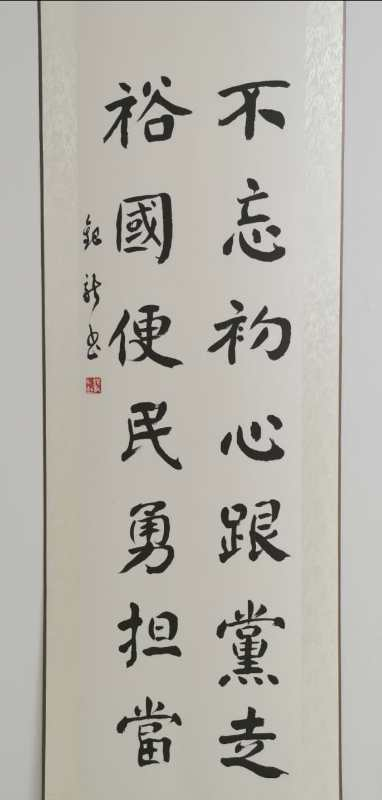 不忘初心跟黨走
裕國便民勇担當
銀龍书